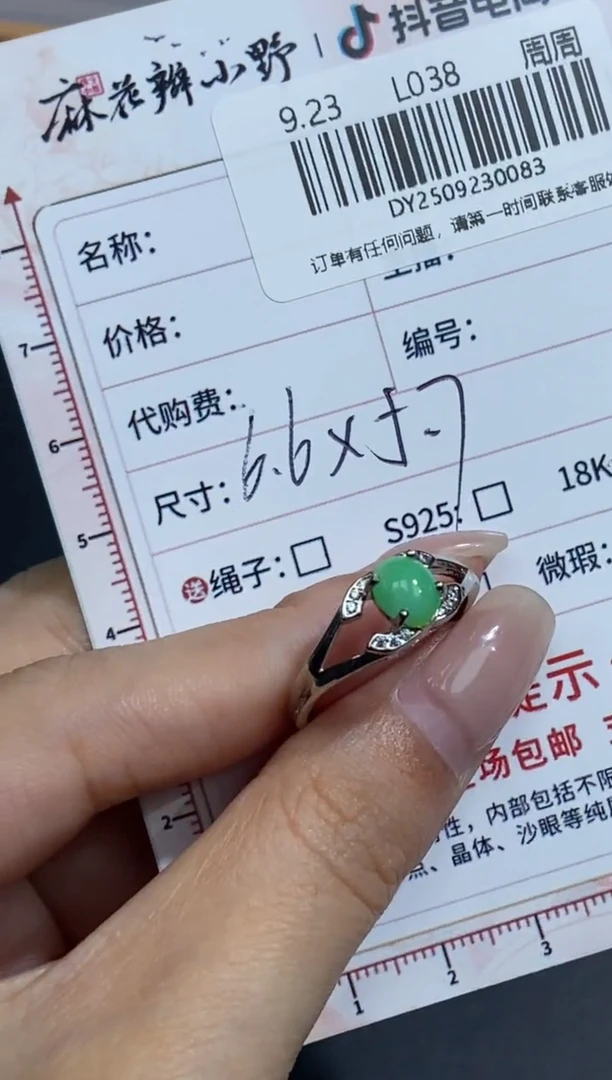 麻花辫小野 | 抖音电商
9.23 L038 周周
DY2509230083
订单有任何问题，请第一时间联系客服
名称：
价格：
编号：
代购费：
尺寸：6.6×5.7
送 绳子：□ S925：□ 18K
微瑕：
7
6
5
4
2
1 2 3
示
场包邮
性，内部包括不限
点、晶体、沙眼等纯